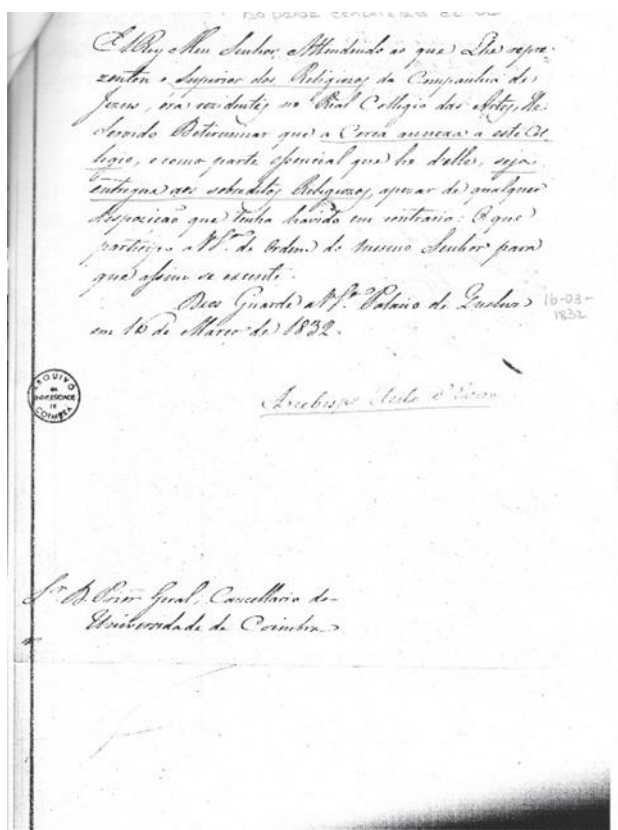 El Rey Meu Senhor Attendendo ao que Lhe repre-
zentou o Superior dos Religiozos da Companhia de
Jezus, ora rezidentes no Real Collegio das Artes, He
Servido Determinar que a Cerca annexa a este Col-
legio, e como parte essencial que he delle, seja
entregue aos sobreditos Religiozos, apezar de qualquer
dispozição que tenha havido em contrario: O que
participo a V. S.ª de Ordem do mesmo Senhor para
que assim se execute.
Deos Guarde a V. S.ª Palacio de Queluz
em 16 de Março de 1832.
16-03-
1832
ARQUIVO
DA
UNIVERSIDADE
DE
COIMBRA
Arcebispo Eleito d'Evora
Geral, Cancellario da
Universidade de Coimbra